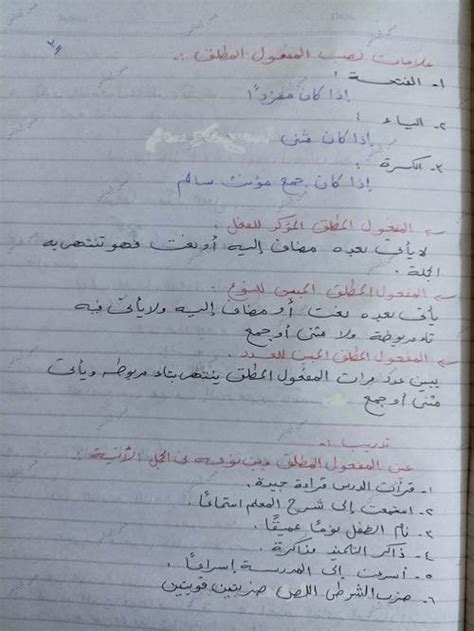 علامات نصب المفعول المطلق :
١- الفتحة :
إذا كان مفردًا
٢- الياء :
إذا كان مثنى
٣- الكسرة :
إذا كان جمع مؤنث سالم
المفعول المطلق المؤكد للفعل .
لا يأتي بعده مضاف إليه أو نعت فهو تنتهي به
الجملة .
المفعول المطلق المبين للنوع
يأتي بعده نعت أو مضاف إليه ولا يأتي فيه
تاء مربوطة ولا مثنى أو جمع
المفعول المطلق المبين للعدد .
يبين عدد مرات المفعول المطلق ينتهي بتاء مربوطه ويأتي
مثنى أو جمع
تدريب :
عين المفعول المطلق وبين نوعه في الجمل الآتية :
١- قرأت الدرس قراءة جيدة .
٢- استمعت إلى شرح المعلم استماعًا .
٣- نام الطفل نومًا عميقًا .
٤- ذاكر التلميذ مذاكرة .
٥- أسرعت إلى المدرسة إسراعًا .
٦- ضرب الشرطي اللص ضربتين قويتين